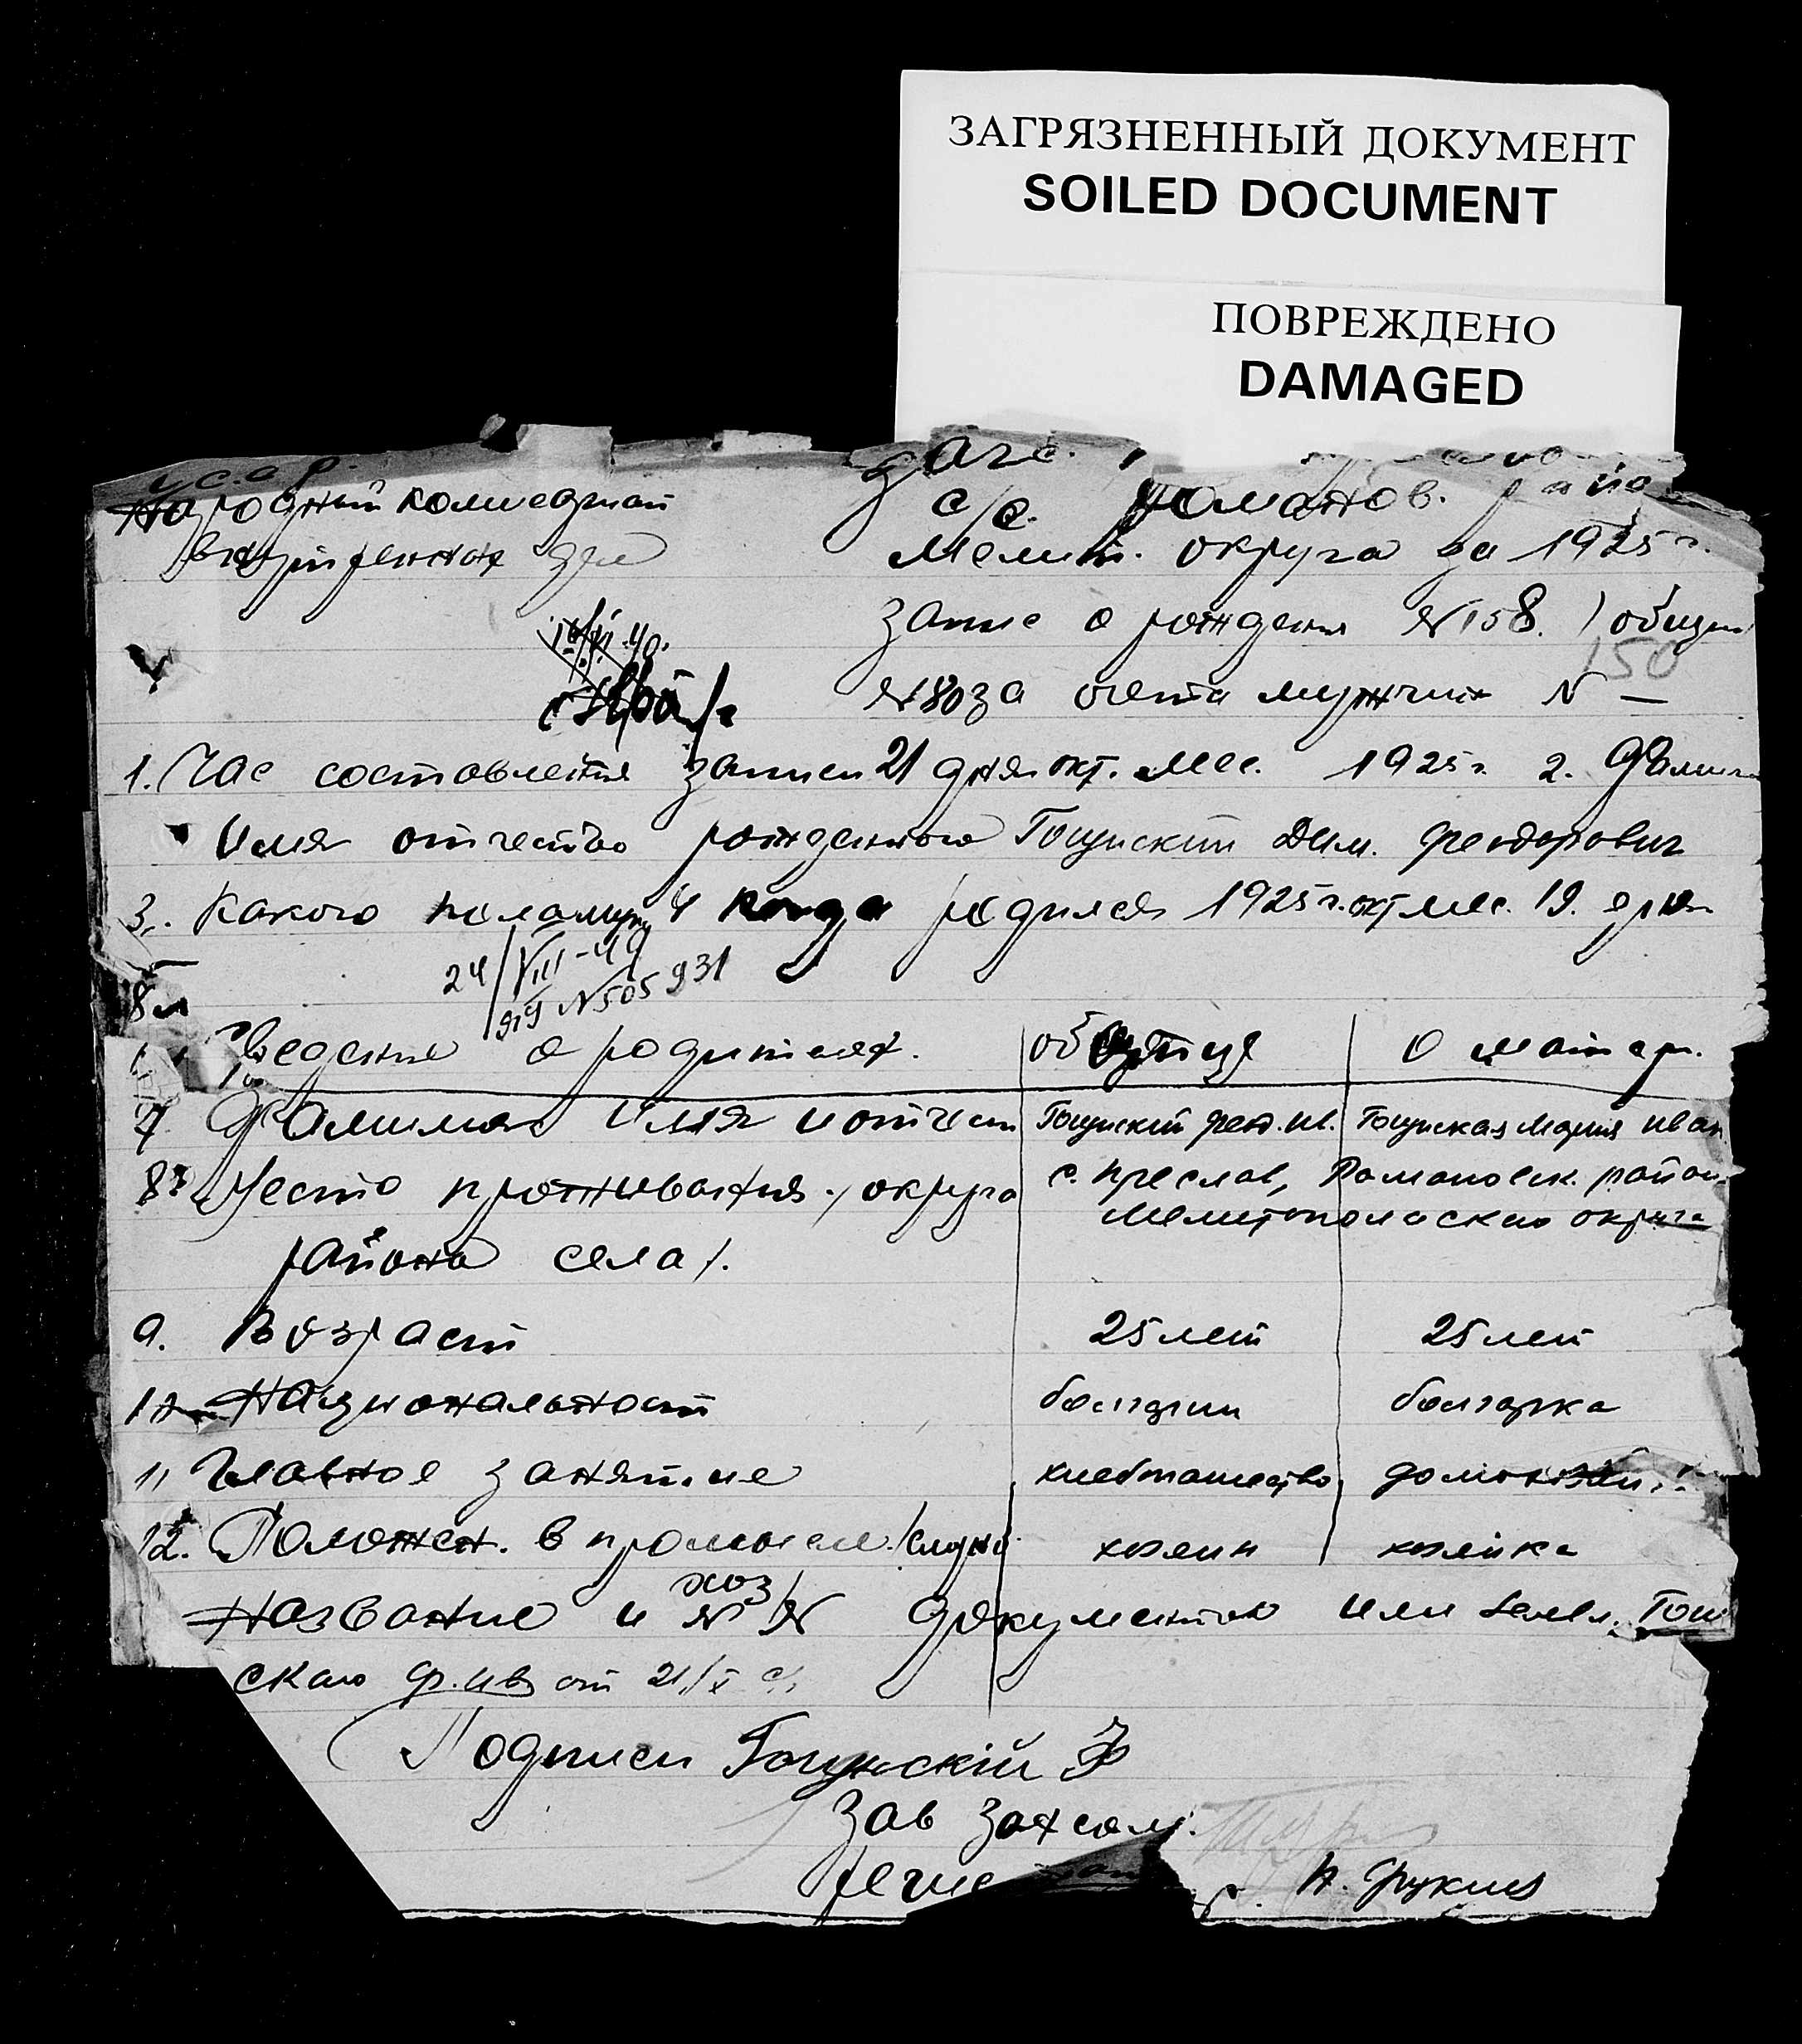 ЗАГРЯЗНЕННЫЙ ДОКУМЕНТ
SOILED DOCUMENT
ПОВРЕЖДЕНО
DAMAGED
У.С.С.Р.
Народный комиссариат
внутренних дел
Загс.
с/с. Романов. райо
Мелит. округа за 1925 г.
Запис о рождении №158. / общий
150
№80 за счета мужчин № —
1. Час составления записи 21 дня окт. мес. 1925 г. 2. Фамили
Имя отчество рожденного Гощунский Дим. Феодорович
3. Какого пола муж 4 когда родился 1925 г. окт мес. 19. дня
24/VIII-49
яз №505931
Сведения о родителях. об отце О матери.
7. Фамилия имя и отчест Гощунский Феод. Ив. Гощунская Мария Иван.
8. Место проживания / округа с. Преслав, Романовск. район.
Мелитопольского округа
района села /.
9. Возраст 25 лет 25 лет
10 Национальност болгарин болгарка
11 Главное занятие хлебопашество домохоз
12. Положен. в промысле. хозяин хозяйка
хоз
Название и №№ документов или заявл. Гощ
ского Ф. Ив от 21/X с/г
Подписи Гощунскій Ф
Зав Загсом.
Регис
Н. Фукив